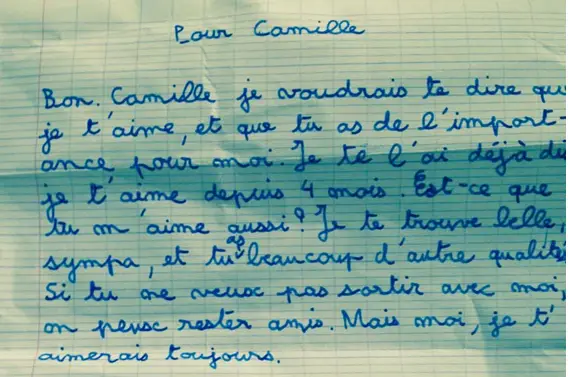 Pour Camille
Bon. Camille je voudrais te dire que
je t'aime, et que tu as de l'import-
ance, pour moi. Je te l'ai déjà di
je t'aime depuis 4 mois. Est-ce que
tu m'aime aussi? Je te trouve belle,
sympa, et tu as beaucoup d'autre qualité
Si tu ne veusc pas sortir avec moi,
on peusc rester amis. Mais moi, je t'
aimerais toujours.